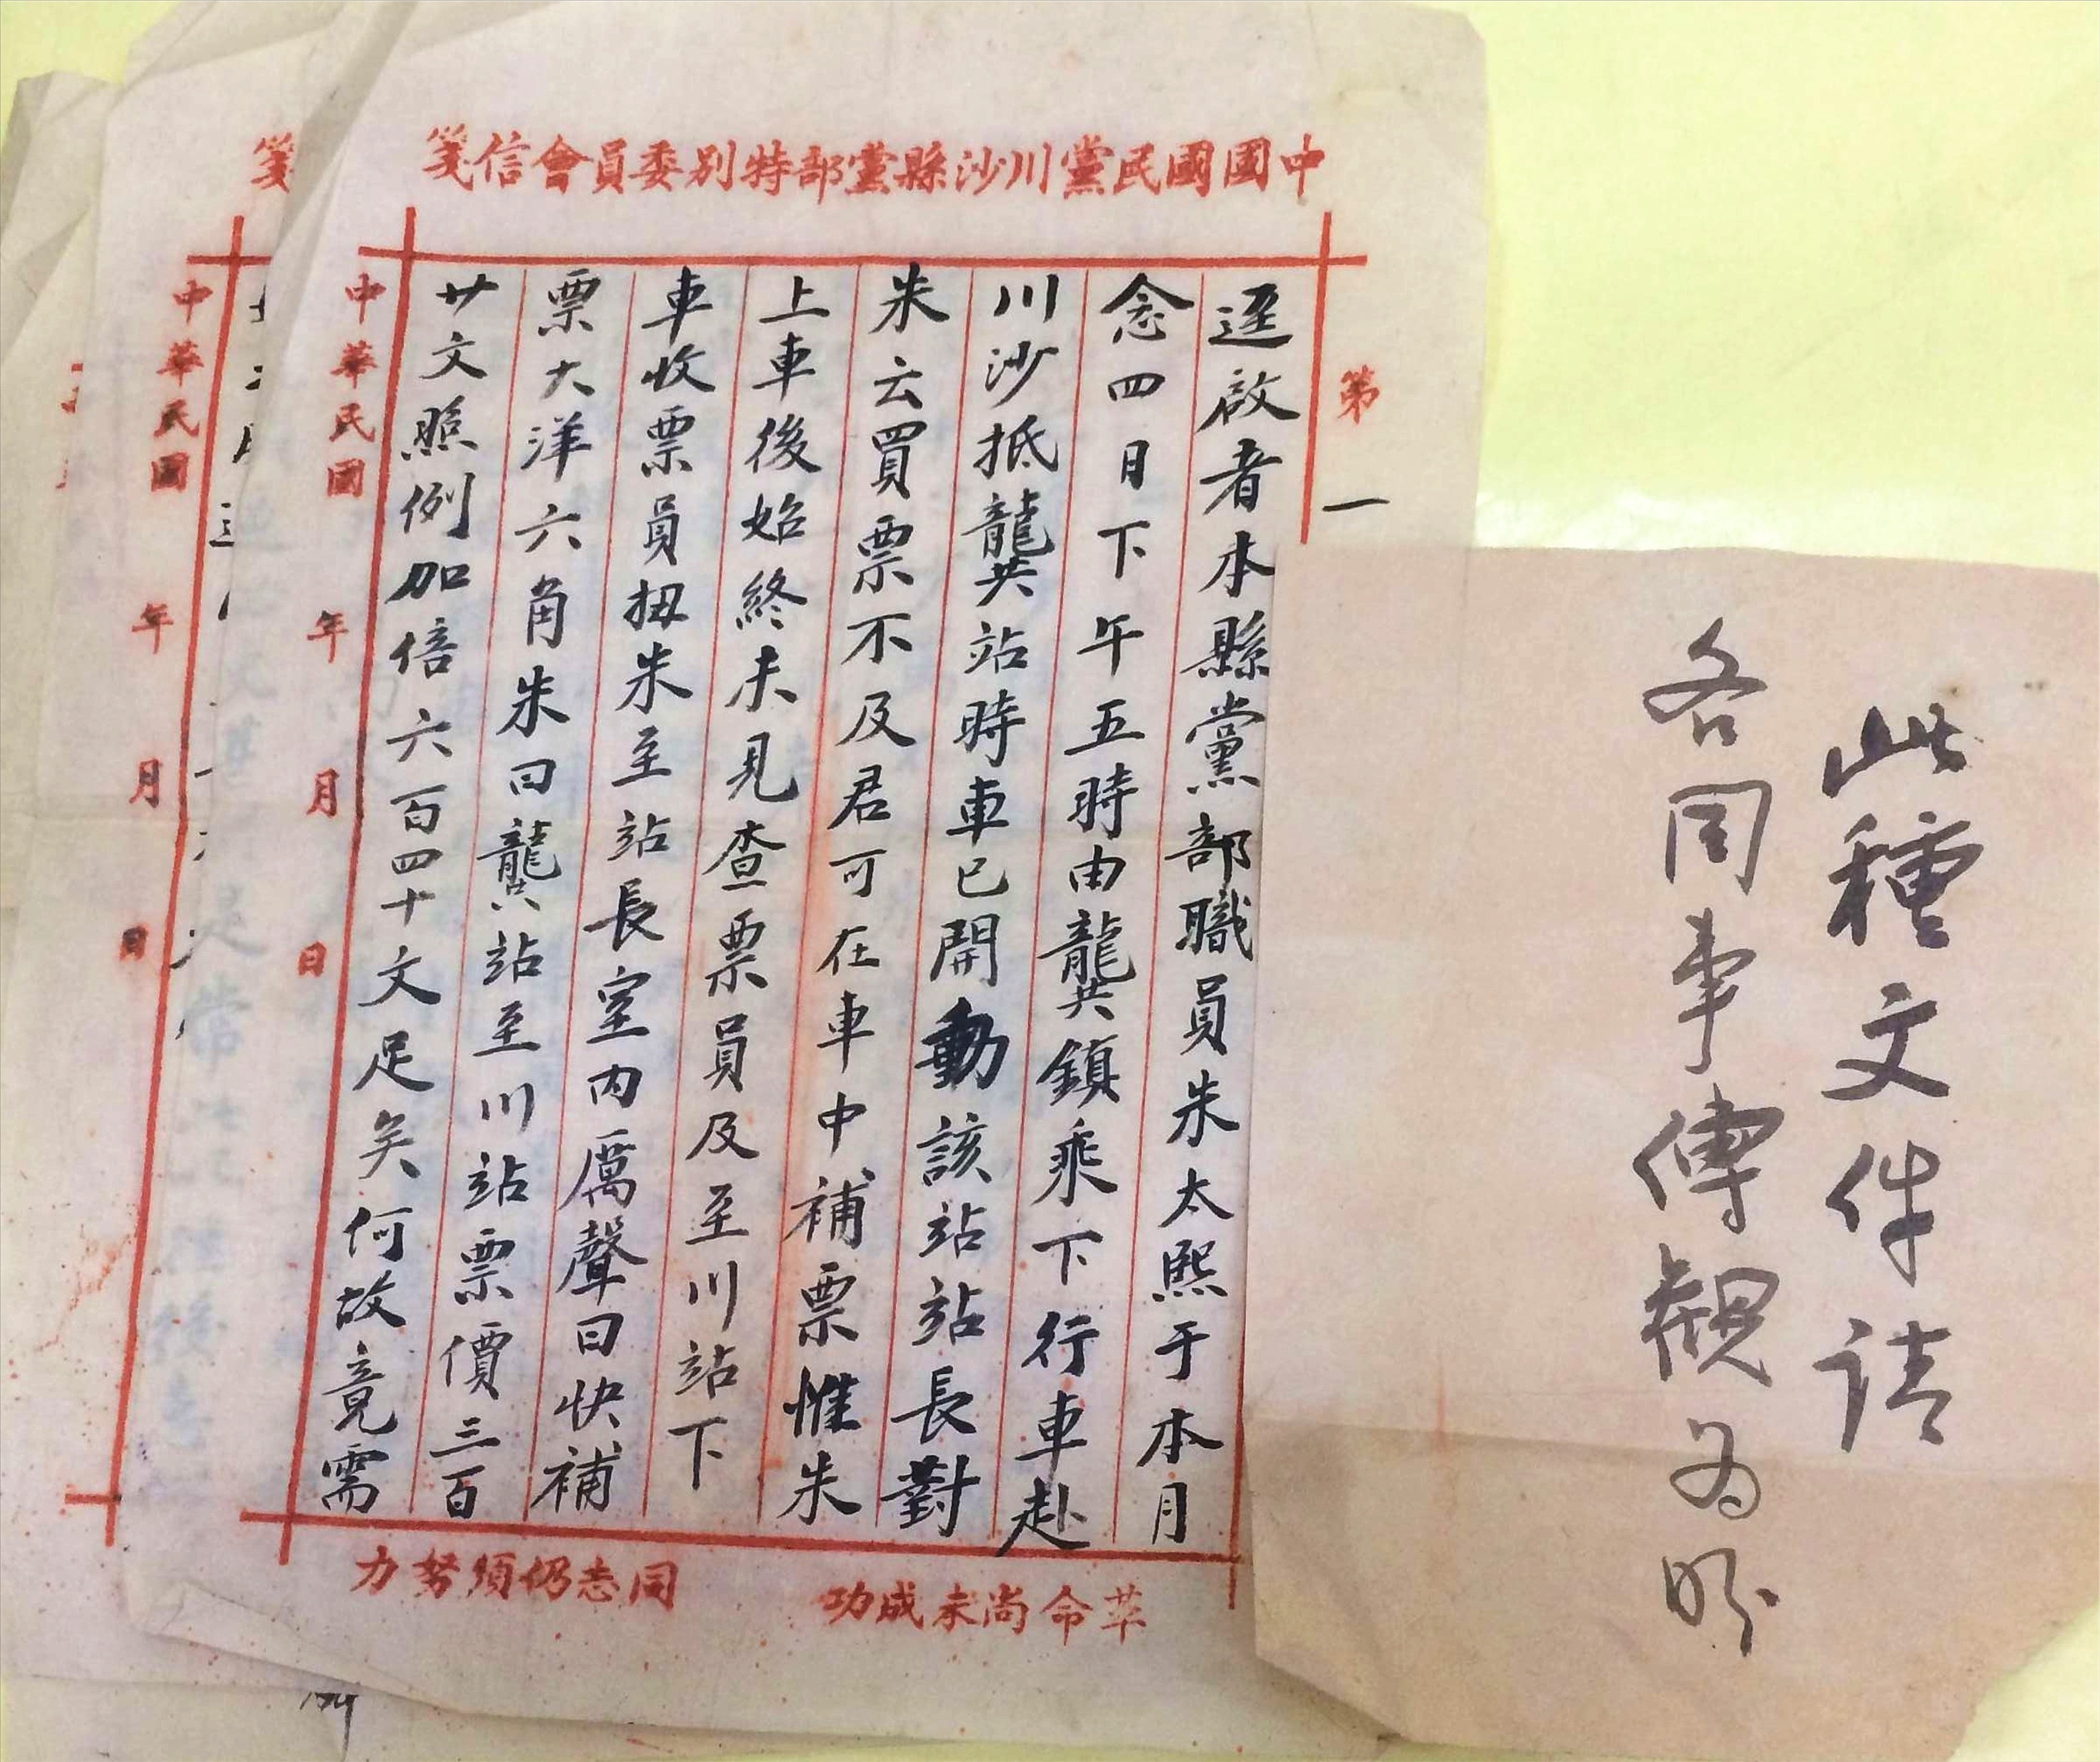 中國國民黨川沙縣黨部特別委員會信箋
第一
逕啟者本縣黨部職員朱太熙于本月
念四日下午五時由龔鎮乘下行車赴
川沙抵龔站時車已開動該站站長對
朱云買票不及君可在車中補票惟朱
上車後始終未見查票員及至川站下
車收票員扭朱至站長室內厲聲曰快補
票大洋六角朱曰龔站至川站票價三百
廿文照例加倍六百四十文足矣何故竟需
中華民國 年 月 日
革命尚未成功
同志仍須努力
此種文件請
各同事傳觀為盼
箋
中華民國 年 月 日